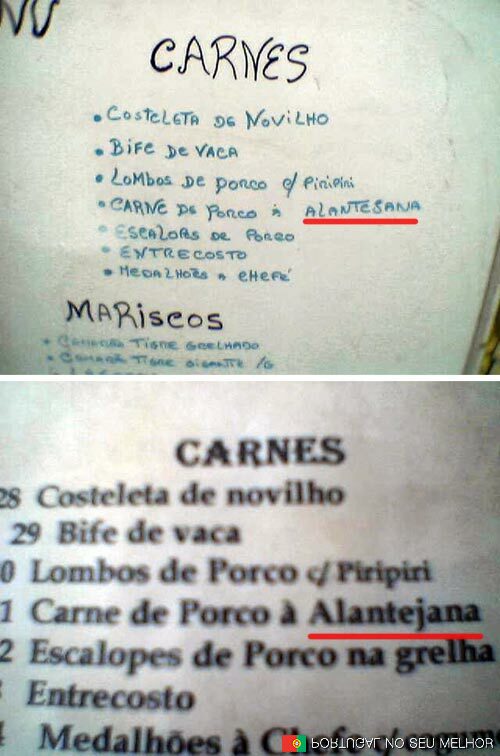 NU
CARNES
• COSTELETA DE NOVILHO
• BIFE DE VACA
• LOMBOS DE PORCO C/ PIRIPIRI
• CARNE DE PORCO À ALANTESANA
• ESCALOPS DE PORCO
• ENTRECOSTO
• MEDALHÕES A CHEFE
MARISCOS
• CAMARÃO TIGRE GRELHADO
• CAMARÃO TIGRE GIGANTE /G
CARNES
28 Costeleta de novilho
29 Bife de vaca
0 Lombos de Porco c/ Piripiri
1 Carne de Porco à Alantejana
2 Escalopes de Porco na grelha
Entrecosto
4 Medalhões à
PORTUGAL NO SEU MELHOR